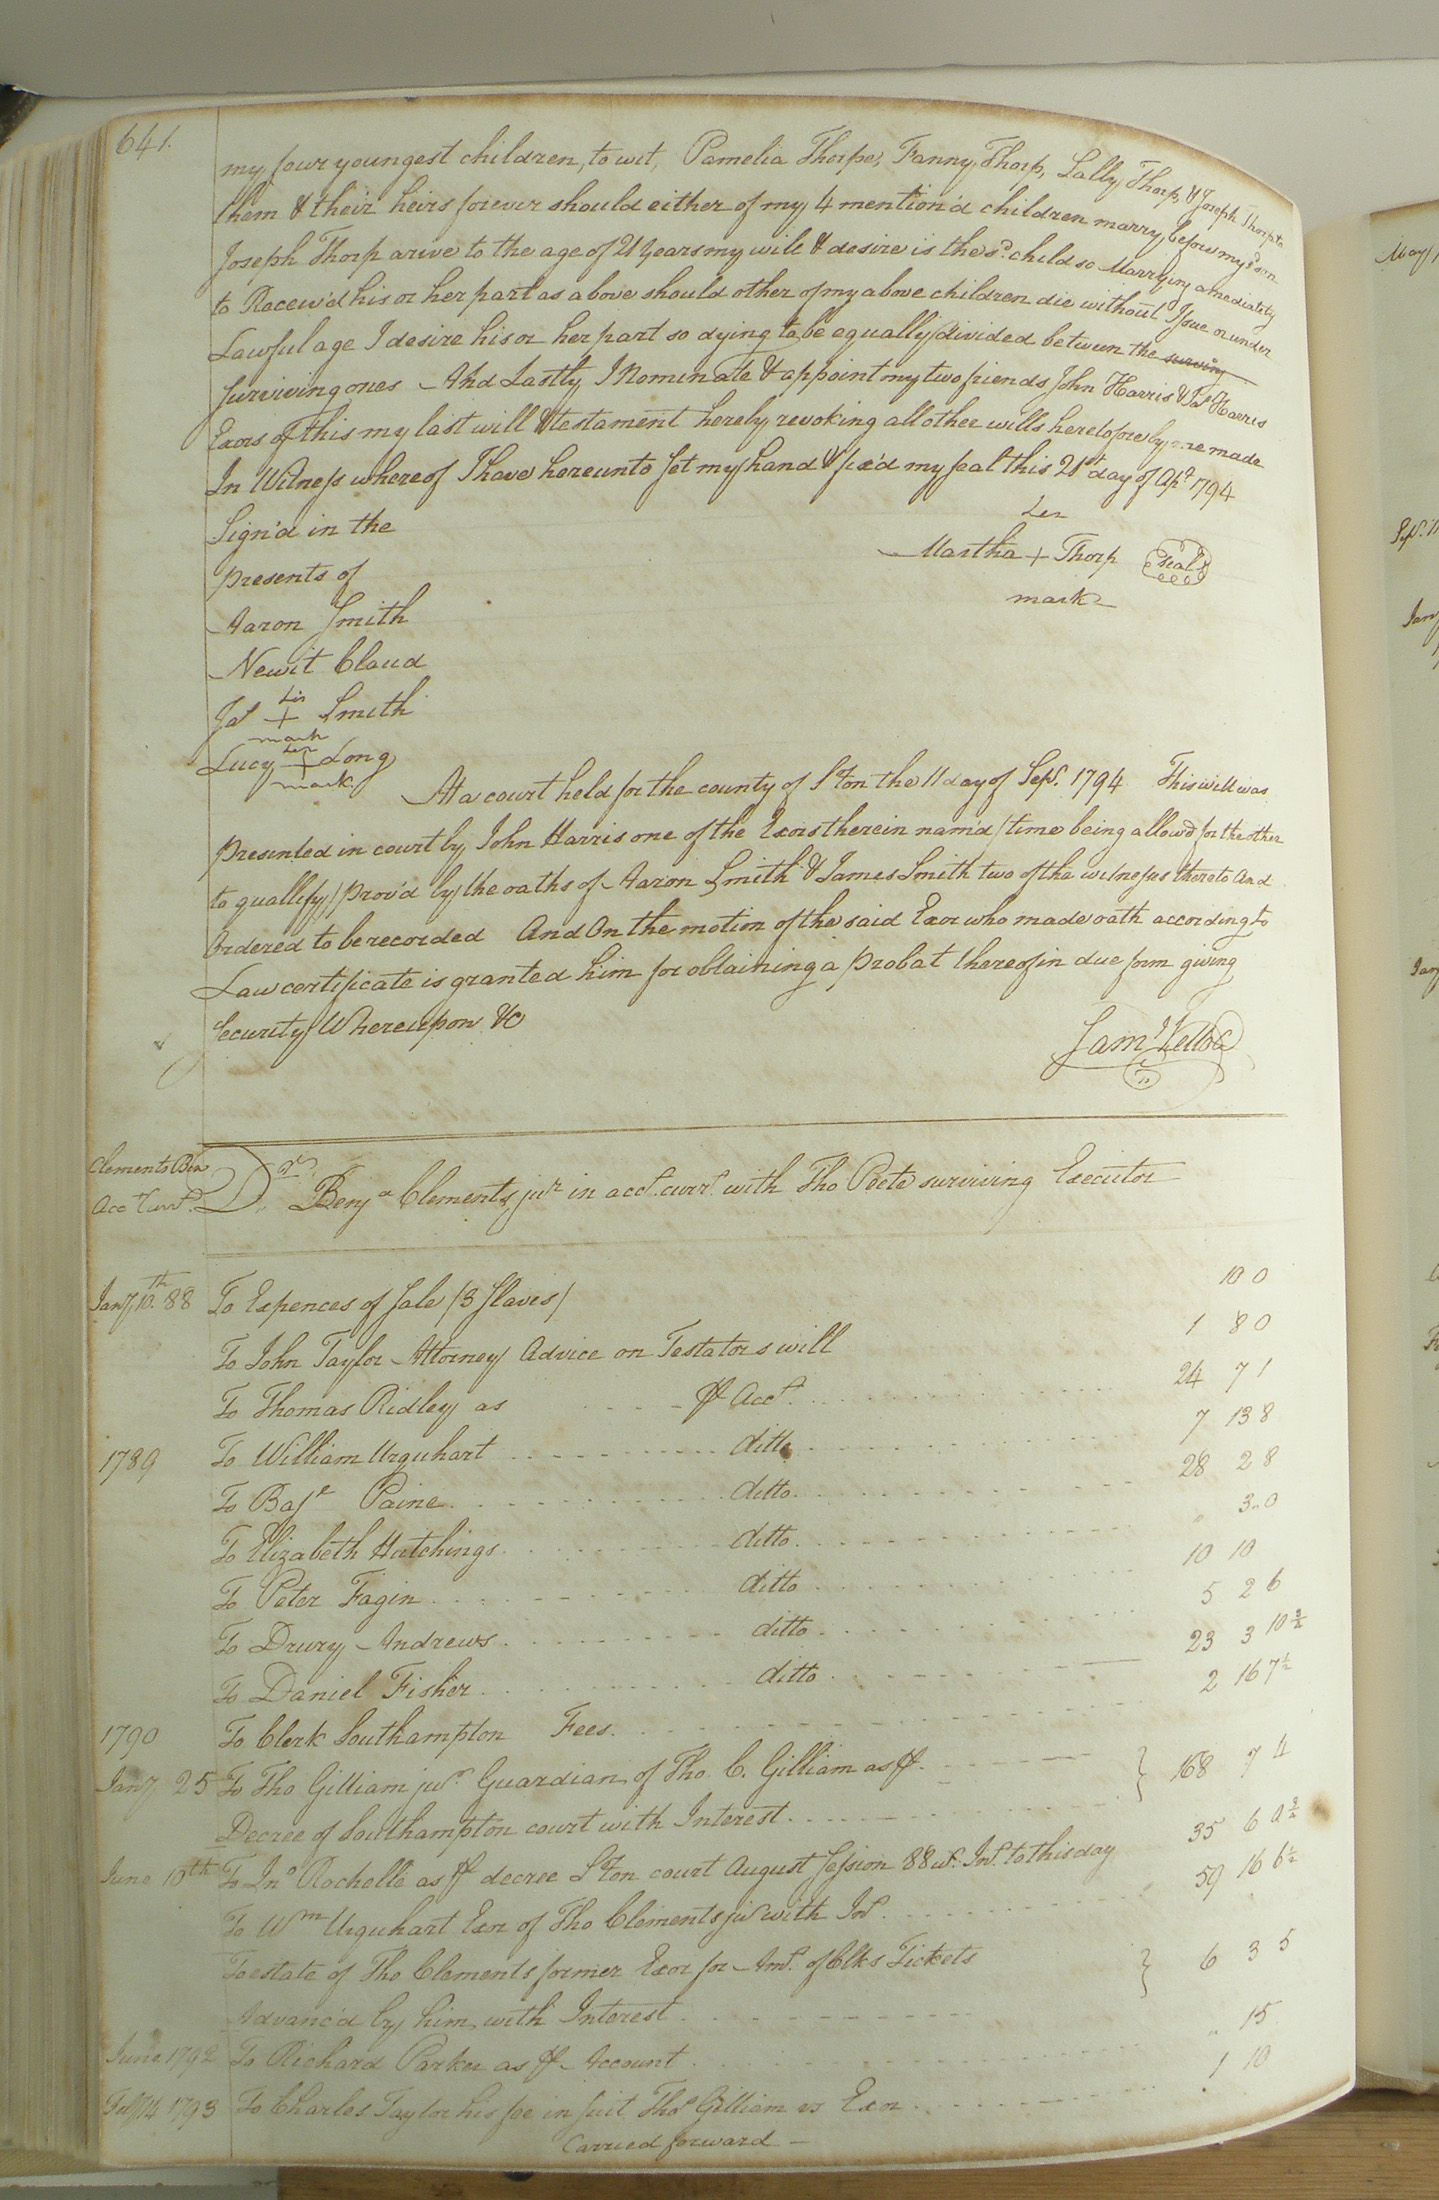 641.
my four youngest children, to wit, Pamelia Thorpe, Fanny Thorp, Sally Thorp, & Joseph Thorp to
them & their heirs forever should either of my 4 mention'd children marry before my sd. son
Joseph Thorp arive to the age of 21 Years my will & desire is the sd. child so Marrying amediately
to Receiv'd his or her part as above should other of my above children die without Issue or under
Lawful age I desire his or her part so dying to be equally divided between the surviving
surviving ones And Lastly I Nominate & appoint my two friends John Harris & Jas Harris
Exors of this my last will & testament hereby revoking all other wills heretofore by me made
In Witness whereof I have hereunto set my hand & fix'd my seal this 21st day of Apl. 1794
Sign'd in the
presents of
Aaron Smith
Newit Claud
his
Jas + Smith
mark
her
Lucy + Long
mark
her
Martha + Thorp seal
mark
At a court held for the county of S'ton the 11 day of Sept. 1794 This will was
presented in court by John Harris one of the Exors therein nam'd / time being allow'd for the other
to quallify / prov'd by the oaths of Aaron Smith & James Smith two of the witnesses thereto And
Ordered to be recorded And On the motion of the said Exor who made oath according to
Law certificate is granted him for obtaining a probat thereof in due form giving
security Whereupon &c
Saml Kello Cl
Clements Ben
Acct Curt.
Dr. Benja Clements, junr in acct. currt. with Tho Peete surviving Executor
Jany 10th. 88 To Expences of Sale /3 Slaves/ 10 0
To John Taylor Attorney Advice on Testators will 1 8 0
To Thomas Ridley as pr Acct. 24 7 1
1789 To William Urquhart ditto 7 13 8
To Paine ditto 28 2 8
To Elizabeth Hutchings ditto 3 0
To Peter Fagin ditto 10 10
To Drury Andrews ditto 5 2 6
To Daniel Fisher ditto 23 3 10 3/4
1790 To Clerk Southampton Fees 2 16 7 1/2
Jany 25 To Tho Gilliam junr Guardian of Tho. C. Gilliam as pr. } 168 7 4
Decree of Southampton court with Interest
June 10th To Jno Rochelle as pr decree S'ton court August Session 88 wt. Int. to this day 35 6 0 3/4
To Wm Urquhart Exor of Tho Clements jur with Int. 59 16 6 1/2
To estate of Tho Clements former Exor for Amt. of Clks Tickets } 6 3 5
Advanc'd by him with Interest
June 1792 To Richard Parker as pr Account 15
July 14 1793 To Charles Taylor his fee in suit Thos Gilliam vs Exor 1 10
Carried forward